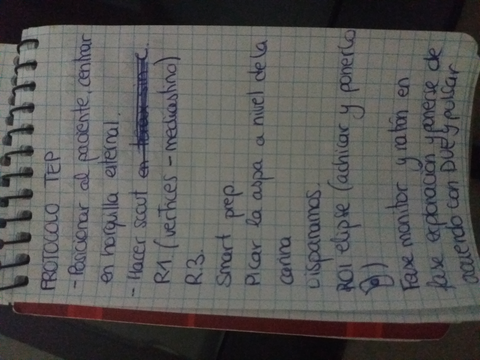 PROTOCOLO TEP
- Posicionar al paciente, centrar
en horquilla esternal.
- Hacer scout en
R1 (vertices - mediastino)
R3.
Smart prep
Picar la aspa a nivel de la
carina
Disparamos.
ROI elipse (achicar y ponerlo
)
Fase monitor y ratón en
fase exploración y ponerse de
acuerdo con DUE y pulsar